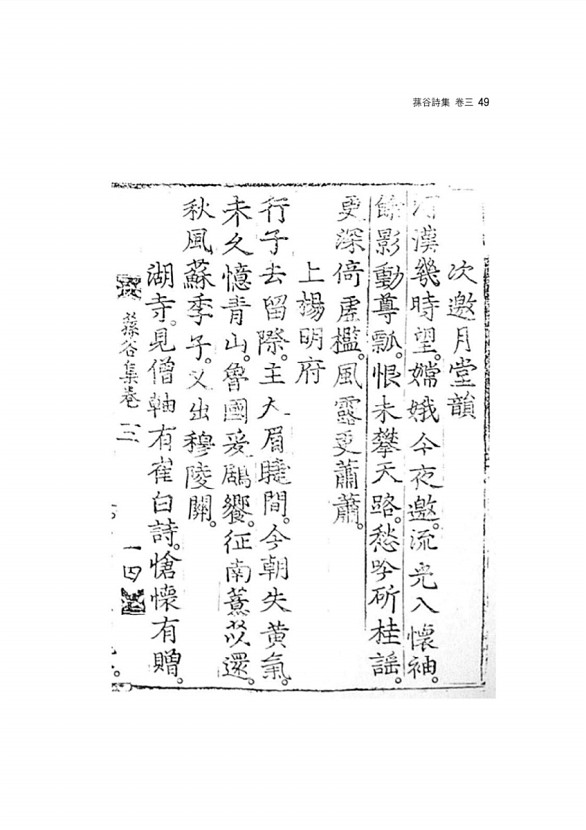 蓀谷詩集 卷三 49
次邀月堂韻
河漢幾時望。嫦娥今夜邀。流光入懷袖。
餘影動尊瓢。恨未攀天路。愁吟斫桂謠。
更深倚虛檻。風露更蕭蕭。
上楊明府
行子去留際。主人眉睫間。今朝失黃氣。
未久憶青山。魯國爰鶋饗。征南薏苡還。
秋風蘇季子。又出穆陵關。
湖寺。見僧軸有崔白詩。愴懷有贈。
蓀谷集卷三
一四